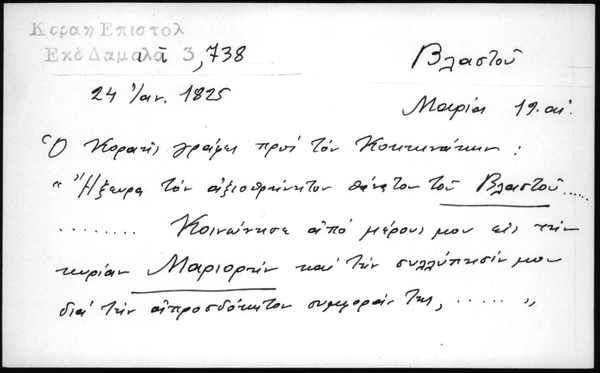 Κοραη Επιστολ
Εκδ Δαμαλά 3, 738
Βλαστοῦ
24 Ἰαν. 1825
Μαρία 19. αἰ.
Ὁ Κοραῆς γράφει πρὸς τὸν Κοκκινάκην :
"Ἤξευρα τὸν ἀξιοθρήνητον θάνατον τοῦ Βλαστοῦ......
........ Κοινώνησε ἀπὸ μέρους μου εἰς τὴν
κυρίαν Μαριορὴν καὶ τὴν συλλύπησίν μου
διὰ τὴν ἀπροσδόκητον συμφοράν της, ......"